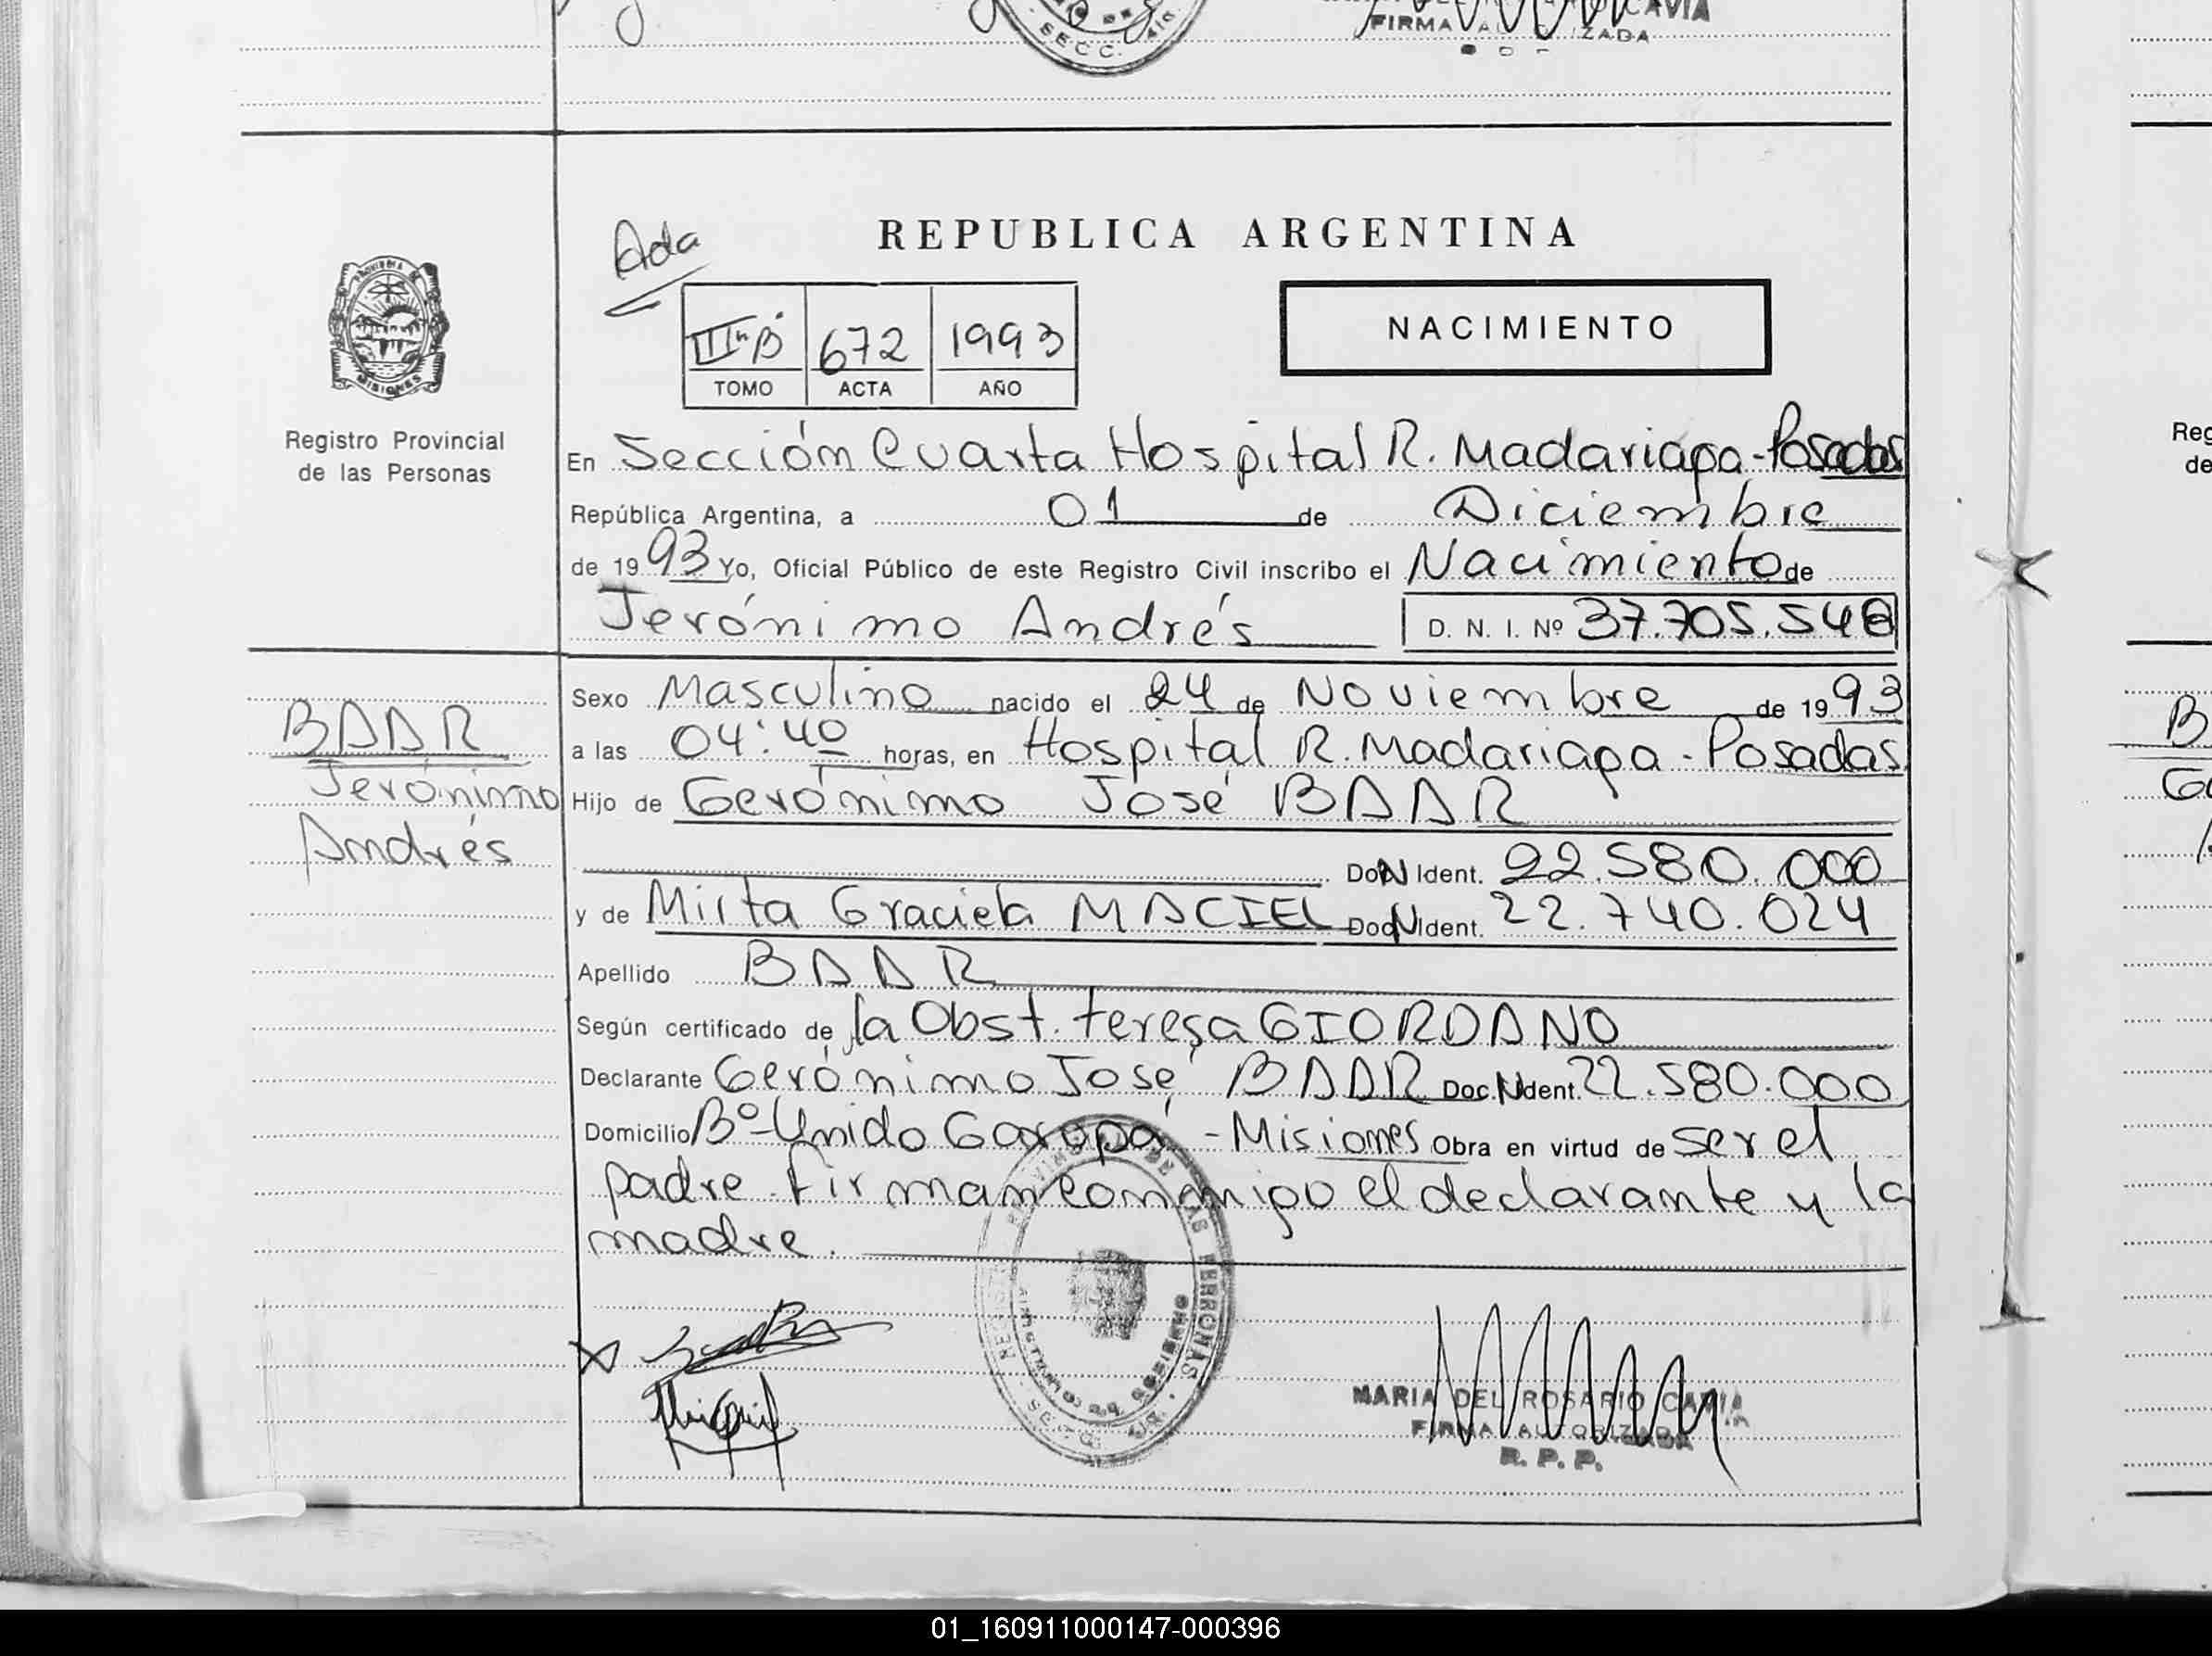 CAVIA
FIRMA AU IZADA
SECC. 4ta.
Ada
REPUBLICA ARGENTINA
PROVINCIA DE
MISIONES
Registro Provincial
de las Personas
III B 672 1993
TOMO ACTA AÑO
NACIMIENTO
En Sección Cuarta Hospital R. Madariaga - Posadas
República Argentina, a 01 de Diciembre
de 1993 Yo, Oficial Público de este Registro Civil inscribo el Nacimiento de
Jerónimo Andrés D. N. I. Nº 37.705.548
BAAR
Jerónimo
Andrés
Sexo Masculino nacido el 24 de Noviembre de 1993
a las 04:40 horas, en Hospital R. Madariaga - Posadas
Hijo de Gerónimo José BAAR
DoN Ident. 22.580.000
y de Mirta Graciela MACIEL Doc Ident. 22.740.024
Apellido BAAR
Según certificado de la Obst. teresa GIORDANO
Declarante Gerónimo José BAAR Doc. Ident. 22.580.000
Domicilio Bº Unido Garupá - Misiones Obra en virtud de ser el
padre firman conmigo el declarante y la
madre.
MARIA DEL ROSARIO CAVIA
FIRMA AUTORIZADA
R. P. P.
Reg
de
B
G
01_160911000147-000396